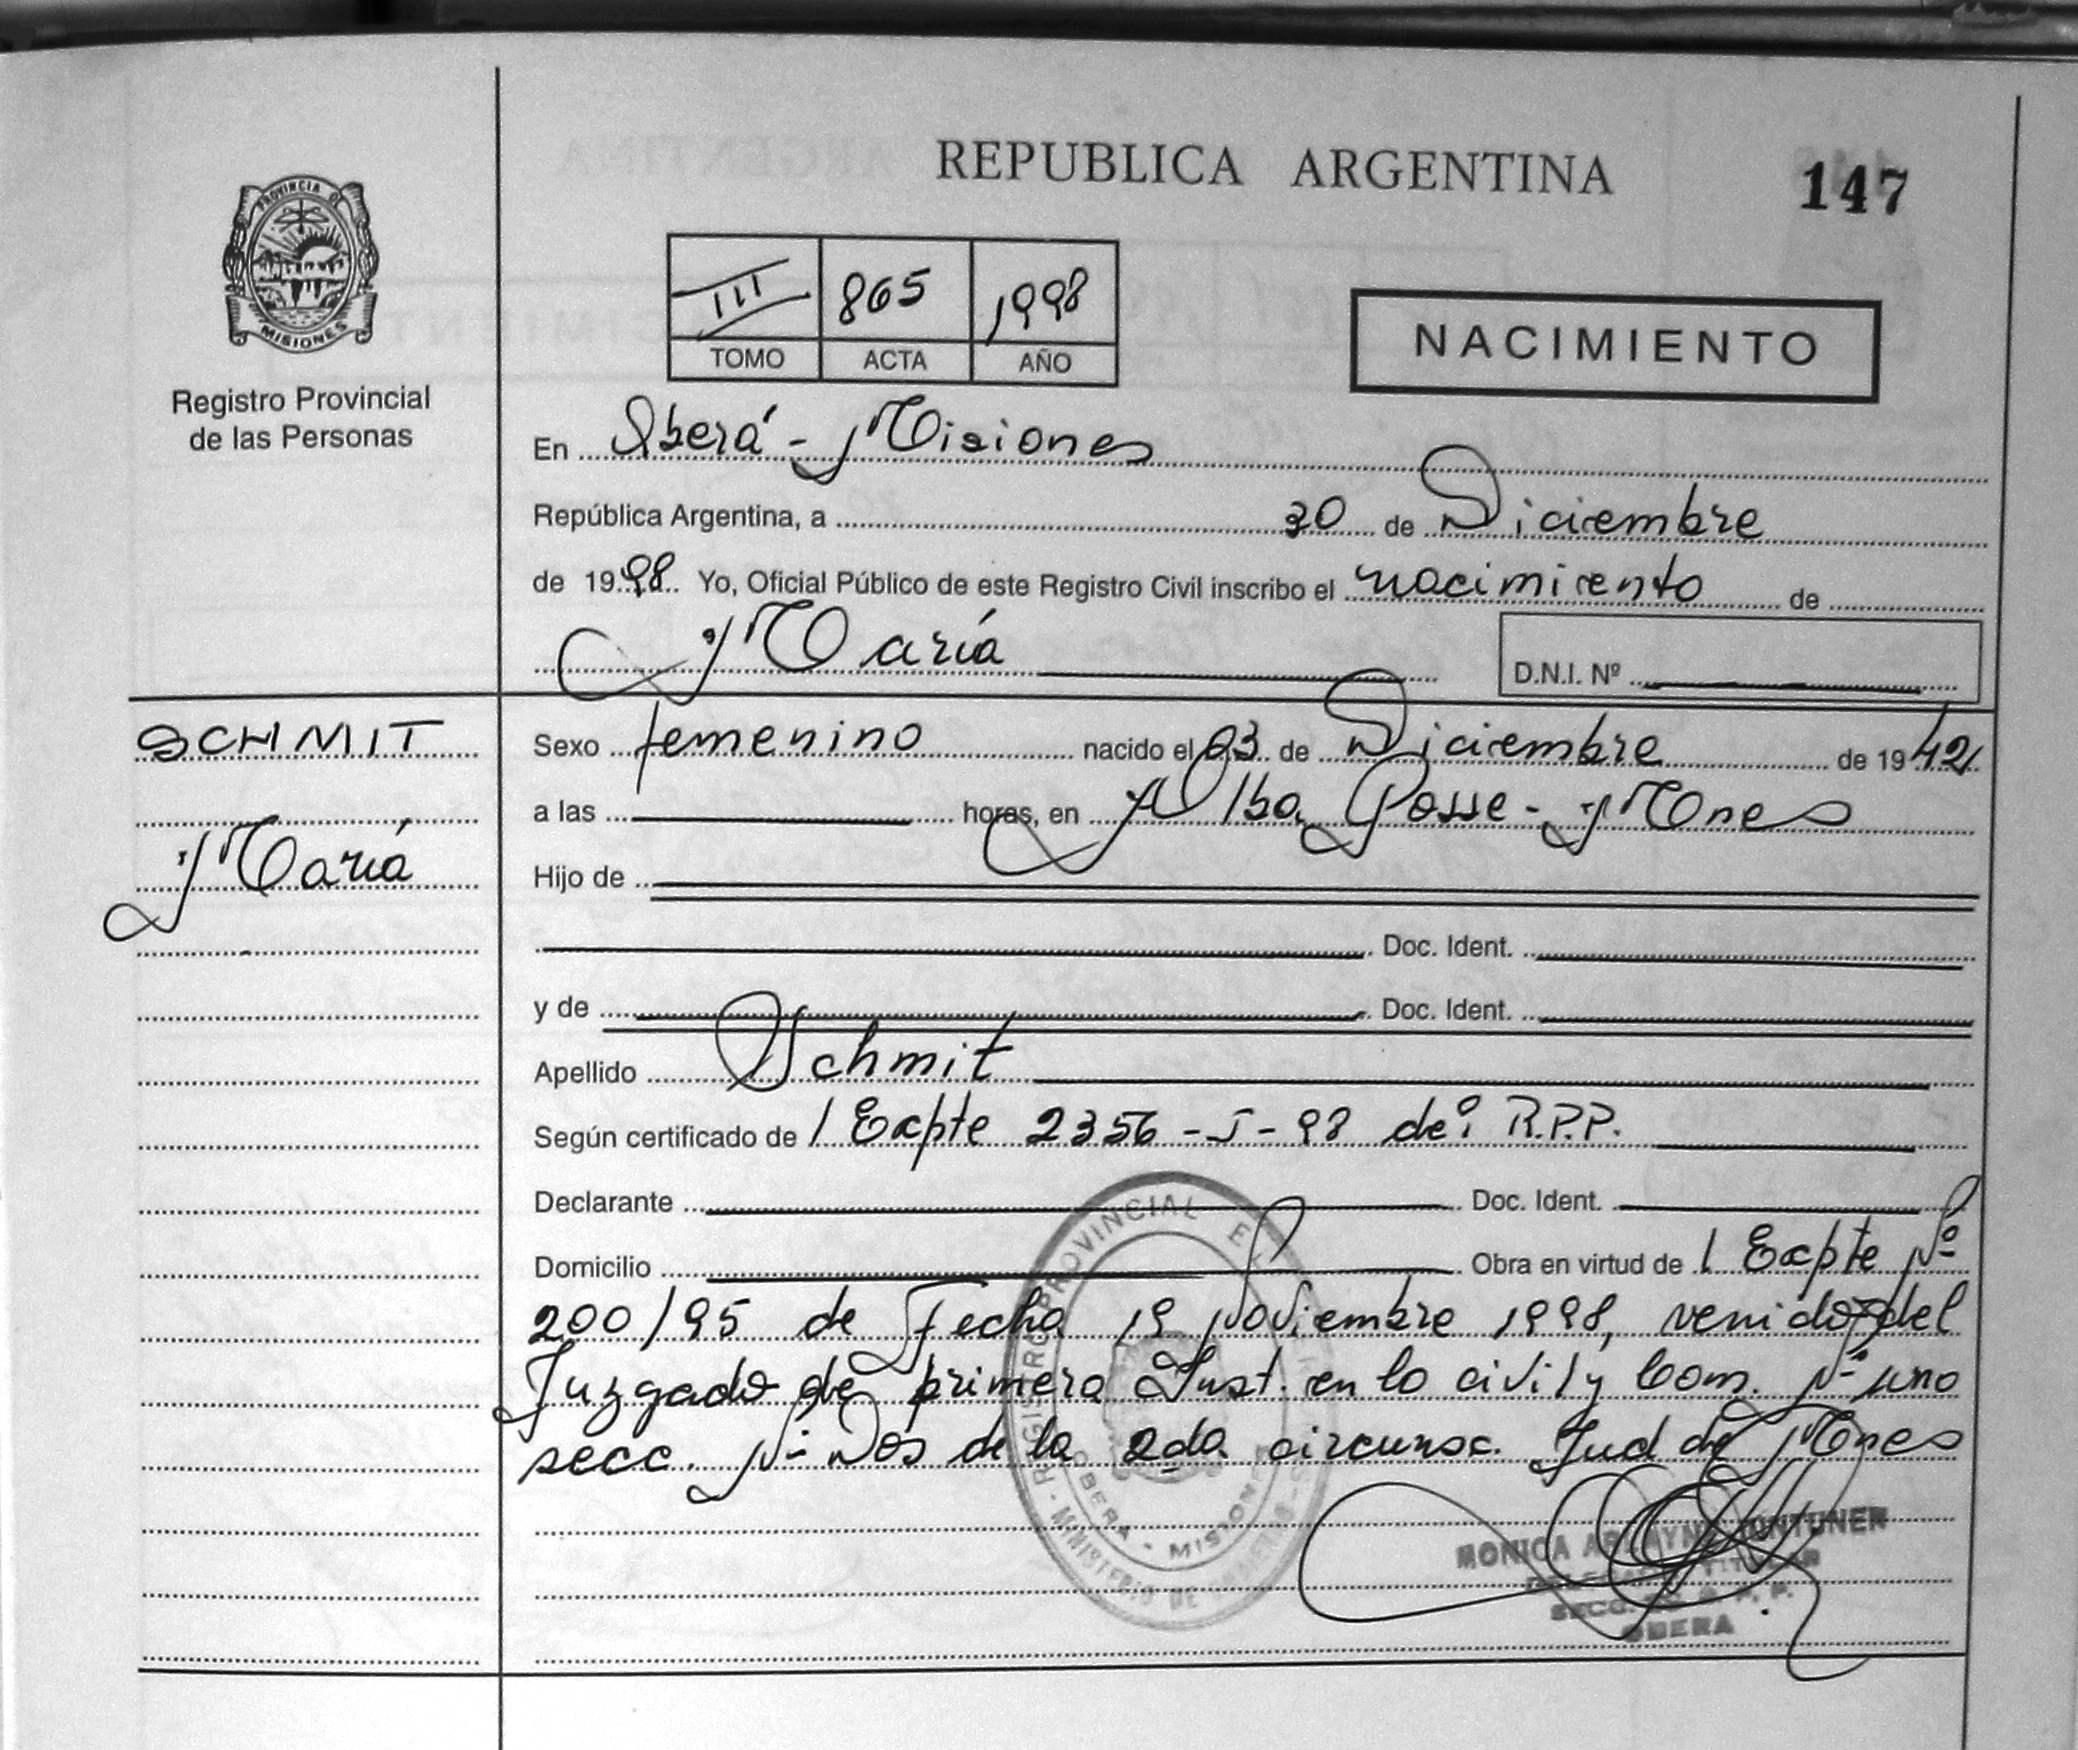 REPUBLICA ARGENTINA
147
PROVINCIA DE
MISIONES
Registro Provincial
de las Personas
III 865 1998
TOMO ACTA AÑO
NACIMIENTO
En Oberá - Misiones
República Argentina, a 30 de Diciembre
de 1998 Yo, Oficial Público de este Registro Civil inscribo el nacimiento de
María
D.N.I. Nº
SCHMIT
María
Sexo femenino nacido el 03 de Diciembre de 1942
a las horas, en Alba Posse - Mnes
Hijo de
Doc. Ident.
y de Doc. Ident.
Apellido Schmit
Según certificado de / Expte 2356 - I - 98 de: R.P.P.
Declarante Doc. Ident.
Domicilio Obra en virtud de / Expte Nº
200/95 de Fecha 19 Noviembre 1998, venido del
Juzgado de primera Inst. en lo civil y Com. Nº uno
secc. Nº Dos de la 2da. circunsc. Jud de Mnes
REGISTRO PROVINCIAL
OBERA - MISIONES
MINISTERIO DE
MONICA
SECC.
OBERA